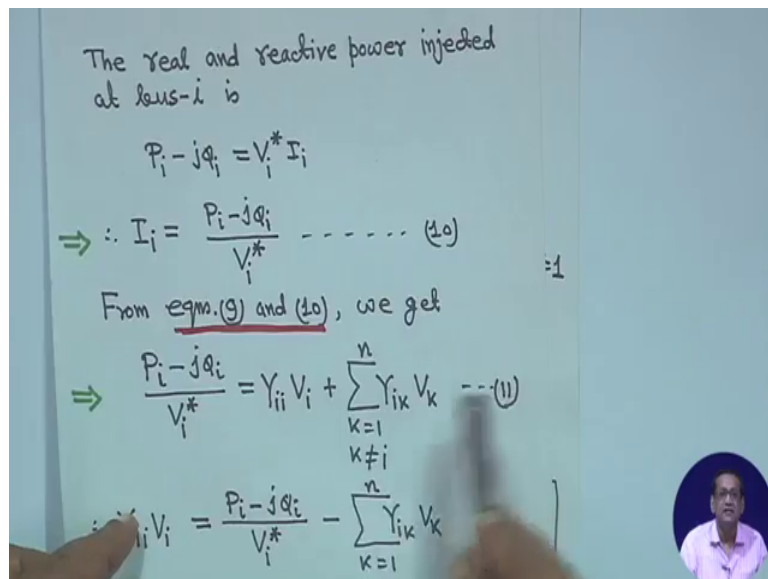 The real and reactive power injected
at bus-i is
P_i - jQ_i = V_i^* I_i
⇒ ∴ I_i = (P_i - jQ_i) / V_i^* ------ (10)
=1
From eqns.(9) and (10), we get
⇒ (P_i - jQ_i) / V_i^* = Y_ii V_i + \sum_{k=1, k≠i}^{n} Y_ik V_k ---(11)
V_i = (P_i - jQ_i) / V_i^* - \sum_{k=1}^{n} Y_ik V_k